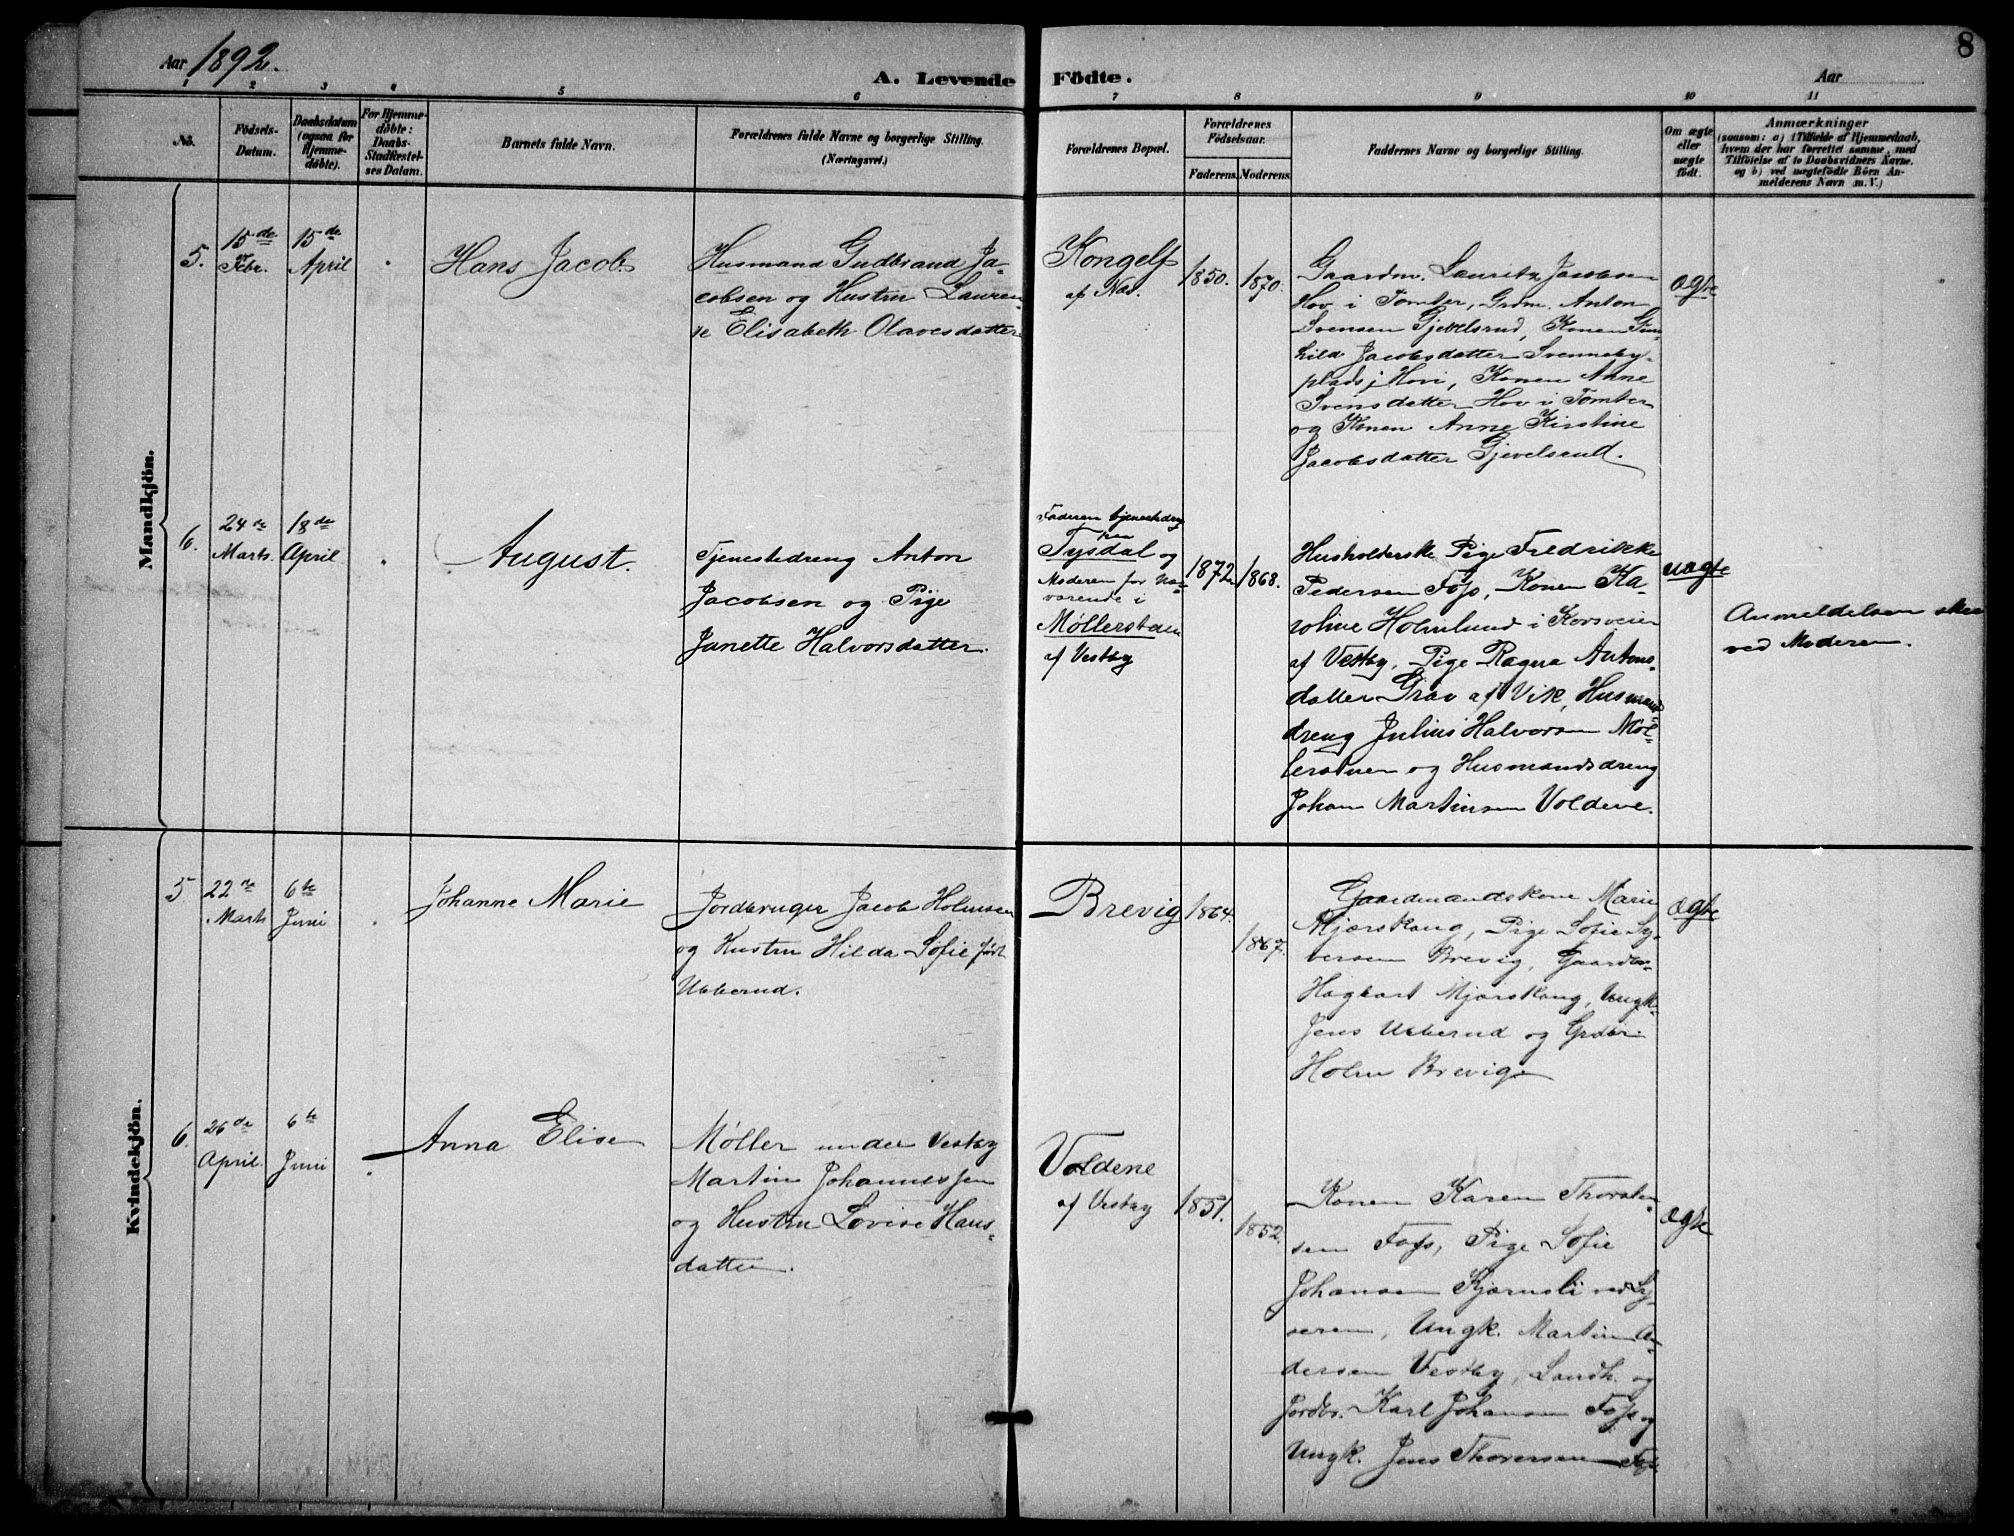 Aar 1892.
A. Levende Födte.
Aar
8
1 2 3 4 5 6 7 8 9 10 11
No.
Födsels-Datum.
Daabsdatum (ogsaa for Hjemme-döbte).
For Hjemme-döbte: Daabs-Stadfæstel-ses Datum.
Barnets fulde Navn.
Forældrenes fulde Navne og borgerlige Stilling.
(Næringsvei.)
Forældrenes Bopæl.
Forældrenes Födselsaar.
Faderens. Moderens.
Faddernes Navne og borgerlige Stilling.
Om ægte eller uægte födt.
Anmærkninger
(saasom: a) i Tilfælde af Hjemmedaab, hvem der har forrettet samme, med Tilföielse af to Daabsvidners Navne. og b) ved uægtefödte Börn An-melderens Navn m. V.)
Mandkjön.
5.
15de Febr.
15de April
Hans Jacob
Husmand Gudbrand Ja-
cobsen og Hustru Lauren-
se Elisabeth Olavesdatter
Kongelf
af Næs.
1850.
1870.
Gaardm. Lauritz Jacobsen
Hov i Tomter, Grdm. Anton
Svensen Gjevelsrud, Konen Gun-
hild Jacobsdatter Svenneby-
plads i Hovi, Konen Anne
Svensdatter Hov i Tomter
og Konen Anne Kirstine
Jacobsdatter Gjevelsrud.
ægte
6.
24de Marts
18de April
August.
Tjenestedreng Anton
Jacobsen og Pige
Janette Halvorsdatter.
Faderen tjenestedreng
fra
Tysdal og
Moderen for Næ-
værende i
Møllerstuen
af Vestby
1872
1868.
Husholderske Pige Fredrikke
Pedersen Foss, Konen Ka-
roline Holmlund i Korsveien
af Vestby, Pige Ragna Antons-
datter Grav af Vik, Husmands
dreng Julius Halvorsen Møl-
lerstuen og Husmandsdreng
Johan Martinsen Voldene.
uægte
Anmeldelsen skeet
ved Moderen.
Kvindekjön.
5
22de Marts
6te Juni
Johanne Marie
Jordbruger Jacob Holmsen
og Hustru Hilda Sofie født
Ubberud.
Brevig
1864.
1867.
Gaardmandskone Marie
Mjærskaug, Pige Sofie Sy-
versen Brevig, Gaardbr.
Hagbart Mjærskaug, Ungk.
Jens Ubberud og Grdbr.
Holm Brevig
ægte
6.
26de April.
6te Juni
Anna Elise
Møller under Vestby
Martin Johannessen
og Hustru Lovise Hans-
datter.
Voldene
af Vestby
1851.
1852.
Konen Karen Thorsten-
sen Foss, Pige Sofie
Johansen Kjærnsli ved Sy-
veren, Ungk. Martin An-
dersen Vestby, Landh. og
Jordbr. Karl Johansen Foss og
Ungk. Jens Thoresen Foss
ægte